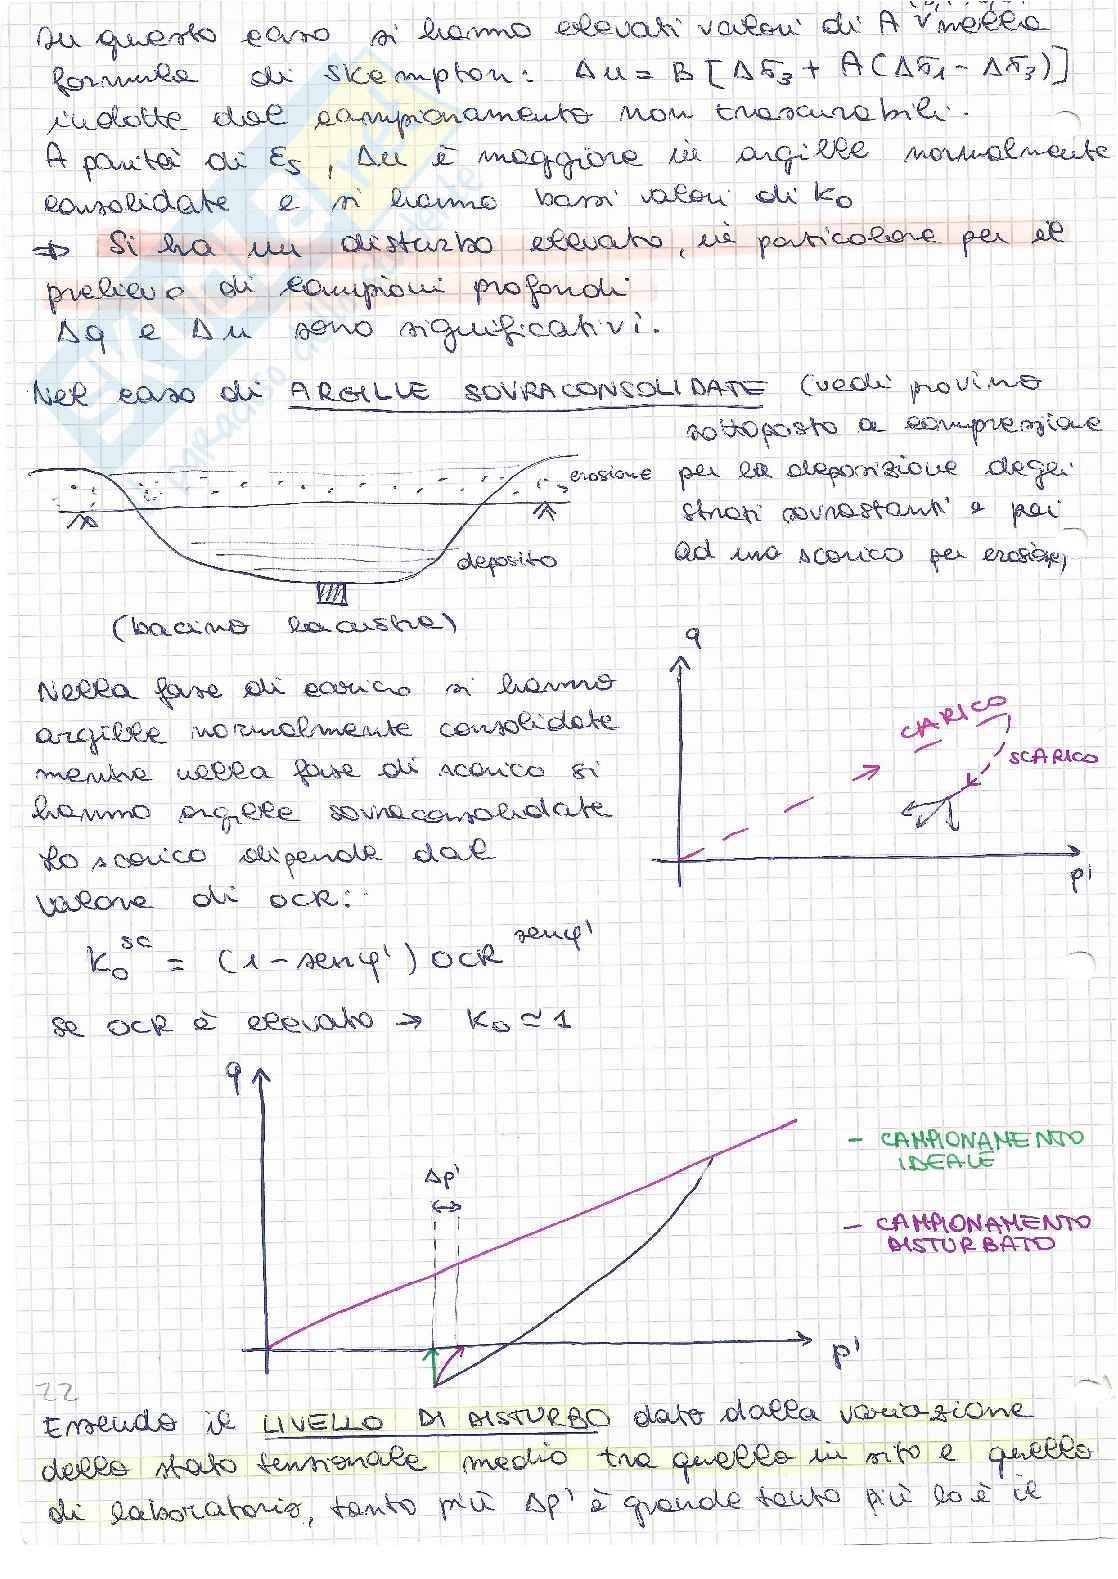 In questo caso si hanno elevati valori di A nella
formula di Skempton: Δu = B [Δσ3 + A(Δσ1 - Δσ3)]
indotte dal campionamento non trascurabili.
A parità di εs, Δu è maggiore in argille normalmente
consolidate e si hanno bassi valori di k0
⇒ Si ha un disturbo elevato, in particolare per il
prelievo di campioni profondi
Δq e Δu sono significativi.
Nel caso di ARGILLE SOVRACONSOLIDATE (vedi provino
sottoposto a compressione
per la deposizione degli
strati sovrastanti e poi
ad uno scarico per erosione)
erosione
deposito
(bacino lacustre)
Nella fase di carico si hanno
argille normalmente consolidate
mentre nella fase di scarico si
hanno argille sovraconsolidate
Lo scarico dipende dal
valore di OCR:
q
CARICO
SCARICO
p'
k0^sc = (1-senφ') OCR^senφ'
se OCR è elevato → K0 ≃ 1
q
Δp'
- CAMPIONAMENTO
IDEALE
- CAMPIONAMENTO
DISTURBATO
p'
22
Essendo il LIVELLO DI DISTURBO dato dalla variazione
dello stato tensionale medio tra quello in sito e quello
di laboratorio, tanto più Δp' è grande tanto più lo è il